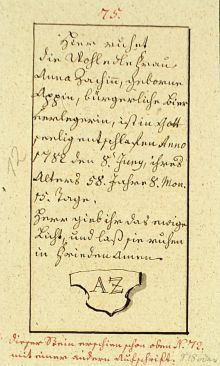 75.
Hier ruhet
die Wohledle Frau
Anna Zachin, geborne
Appin, bürgerliche Bier
verlegerin, ist in Gott
seelig entschlafen Anno
1782 den 8. Juny, ihres
Alters 58. Jahre 8. Mon.
15. Tage.
Herr gieb ihr das ewige
Licht, und laß sie ruhen
in Frieden Amen.
AZ
Dieser Stein erschien schon oben N. 73.
mit einer andern Aufschrift.